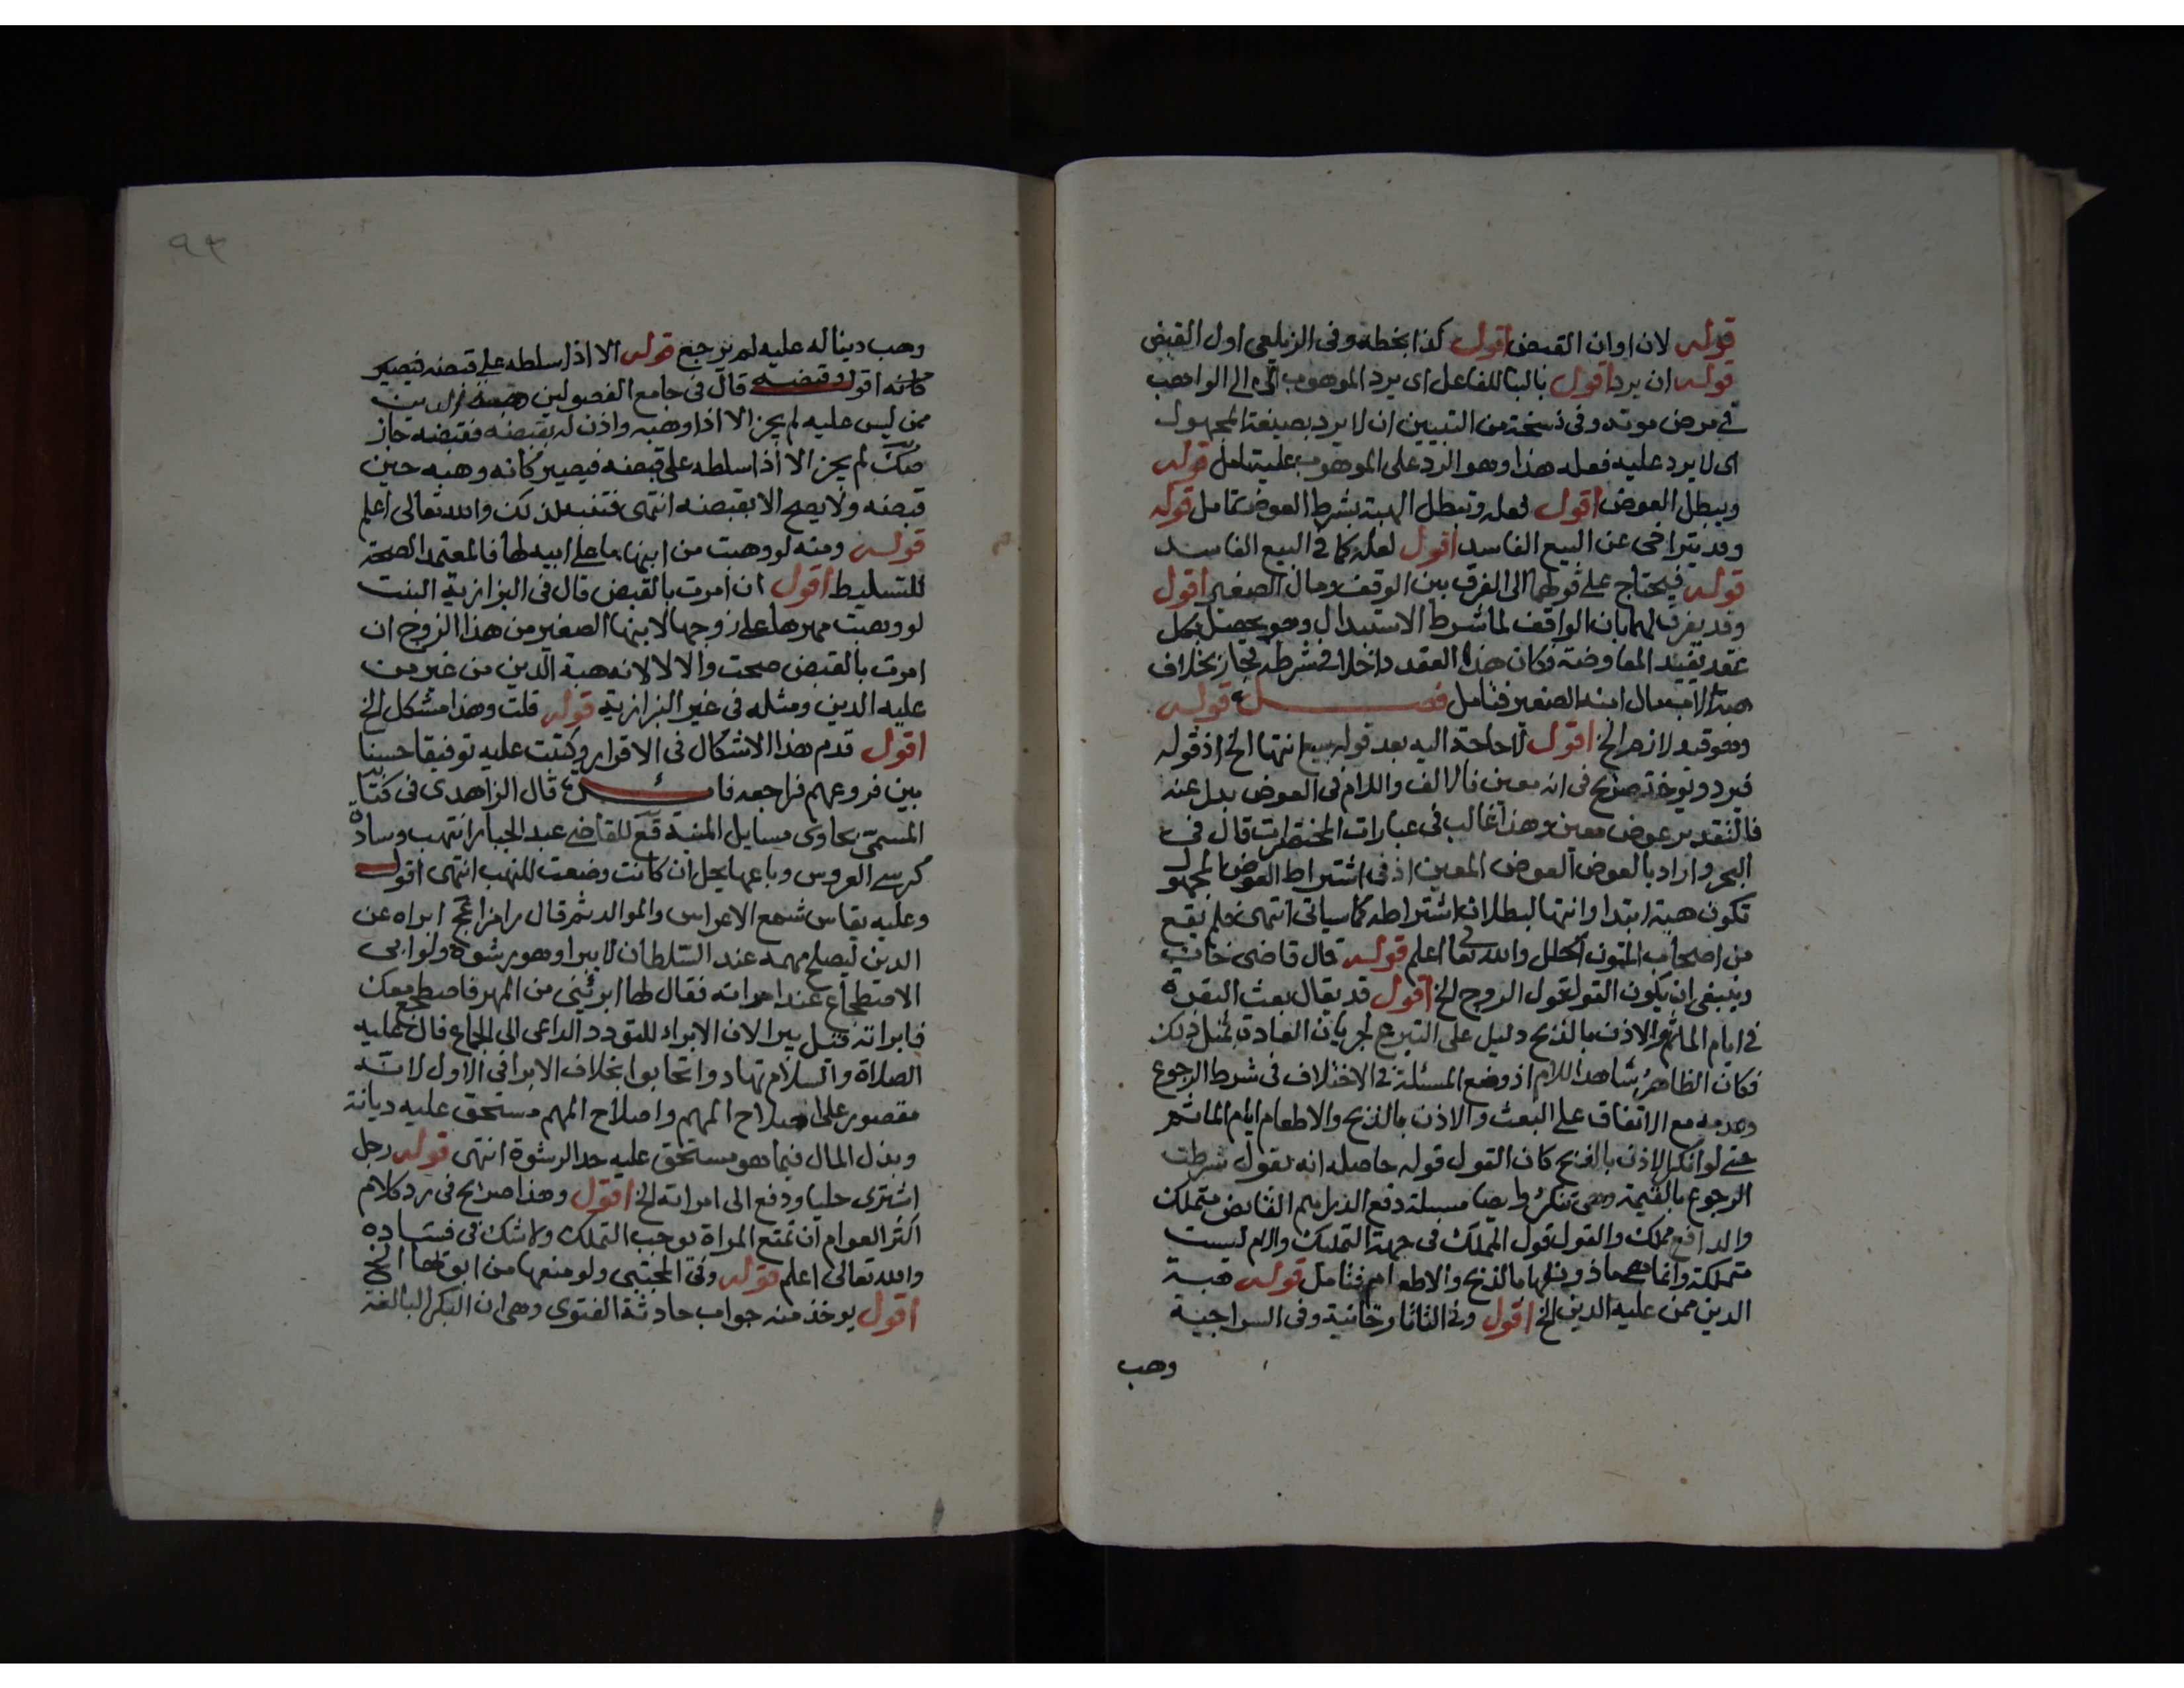 قوله لان اوان القبض اقول كذا بخطه وفى الزيلعى اول القبض
قوله ان يرد اقول بالبنا للفاعل اى يرد الموهوب الى الواهب
فى مرض موته وفى نسخة من التبيين ان لا يرد بصيغة المجهول
اى لا يرد عليه فعله هذا وهو الرد على الموهوب عليه تامل قوله
ويبطل العوض اقول لعله وتبطل الهبة بشرط العوض تامل قوله
وقد يتراخى عن البيع الفاسد اقول لعله كما فى البيع الفاسد
قوله فيحتاج على قولهما الى الفرق بين الوقف ومال الصغير اقول
وقد يفرق لهما بان الواقف لما شرط الاستبدال وهو يحصل بكل
عقد يفيد المعاوضة فكان هذا العقد داخلا فى شرطه فجاز بخلاف
هبة الاب مال ابنه الصغير فتامل فصل قوله
وهو قيد لازم الخ اقول لا حاجة اليه بعد قوله بيع انتها الخ اذ قوله
فيرد ويوخذ صريح فى انه معين فالالف واللام فى العوض بدل عنه
فالتقدير عوض معين وهذا غالب فى عبارات المختصرات قال فى
البحر واراد بالعوض العوض المعين اذ فى اشتراط العوض المجهول
تكون هبة ابتدا وانتها لبطلان اشتراطه كما سياتى انتهى فلم يقع
من اصحاب المتون الخلل والله تعا اعلم قوله قال قاضى خان
وينبغى ان يكون القول قول الزوج الخ اقول قد يقال بعث البقرة
فى ايام الماتم والاذن بالذبح دليل على التبرع لجريان العادة بمثل ذلك
فكان الظاهر شاهدا للام اذ وضع المسئلة فى الاختلاف فى شرط الرجوع
وعدمه مع الاتفاق على البعث والاذن بالذبح والاطعام ايام الماتم
حتى لو انكر الاذن بالذبح كان القول قوله حاصله انه يقول شرطت
الرجوع بالقيمة وهى تنكر وايضا مسيلة دفع الدراهم القابض متملك
والدافع مملك والقول قول المملك فى جهة التمليك والام ليست
متملكة وانما هى ماذون لها بالذبح والاطعام فتامل قوله هبة
الدين ممن عليه الدين الخ اقول وفى التاتارخانية وفى السراجية
وهب
٩٣
وهب دينا له عليه لم يرجع قوله الا اذا سلطه على قبضه فيصير
كانه اقول وقبضه قال فى جامع الفصولين هبة الدين
ممن ليس عليه لم يجز الا اذا وهبه واذن له بقبضه فقبضه جاز
صك لم يجز الا اذا سلطه على قبضه فيصير كانه وهبه حين
قبضه ولا يصح الا بقبضه انتهى فتنبه لذلك والله تعالى اعلم
قوله ومنه لو وهبت من ابنها ما على ابيه لها فالمعتمد الصحة
للتسليط اقول ان امرت بالقبض قال فى البزازية البنت
لو وهبت مهرها على زوجها لابنها الصغير من هذا الزوج ان
امرت بالقبض صحت والا لا لانه هبة الدين من غير من
عليه الدين ومثله فى غير البزازية قوله قلت وهذا مشكل الخ
اقول قدم هذا الاشكال فى الاقرار وكتبت عليه توفيقا حسنا
بين فروعهم فراجعه قال الزاهدى فى كتابه
المسمى بحاوى مسايل المنية قع للقاضى عبد الجبار انتهب وسادة
كرسى العروس وباعها يحل ان كانت وضعت للنهب انتهى اقول
وعليه يقاس شمع الاعراس والموالد ثم قال رامزا عج ابراه عن
الدين ليصلح مهمه عند السلطان لا يبرا وهو رشوة ولو ابى
الاضطجاع عند امراته فقال لها ابرئينى من المهر فاضطجع معك
فابراته قيل يبرا لان الابراء للتودد الداعى الى الجماع قال عليه
الصلاة والسلام تهادوا تحابوا بخلاف الابرا فى الاول لانه
مقصور على اصلاح المهم واصلاح المهم مستحق عليه ديانة
وبذل المال فيما هو مستحق عليه حد الرشوة انتهى قوله رجل
اشترى حليا ودفع الى امراته الخ اقول وهذا صريح فى رد كلام
اكثر العوام ان تمتع المراة يوجب التملك ولا شك فى فساده
والله تعالى اعلم قوله وفى المجتبى ولو منعها من ابويها الخ
اقول يوخذ منه جواب حادثة الفتوى وهى ان البكر البالغة